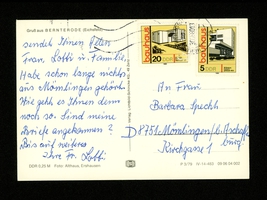 Gruß aus BERNTERODE (Eichsfeld)
sendet Ihnen Peter
Frau, Lotti u. Familie.
Habe schon lange nichts
aus Mömlingen gehört.
Wie geht es Ihnen denn
noch so. Sind meine
Briefe angekommen?
Bis auf weiteres
Ihre Fr. Lotti.
bauhaus
20
DDR
bauhaus
5
DDR
An Frau
Barbara Spechl
D 8751 Mömlingen b/Aschaffenburg
Kirchgasse 1